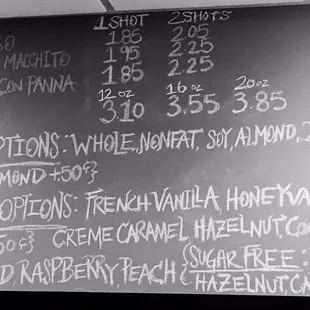 1 SHOT 2 SHOTS
SO 1.85 2.05
MACCHITO 1.95 2.25
CON PANNA 1.85 2.25
12oz 16oz 20oz
3.10 3.55 3.85
PTIONS: WHOLE, NONFAT, SOY, ALMOND,
MOND +50¢}
OPTIONS: FRENCH VANILLA, HONEY VA
50¢} CREME CARAMEL HAZELNUT, CO
D, RASPBERRY, PEACH {SUGAR FREE:
HAZELNUT, CA